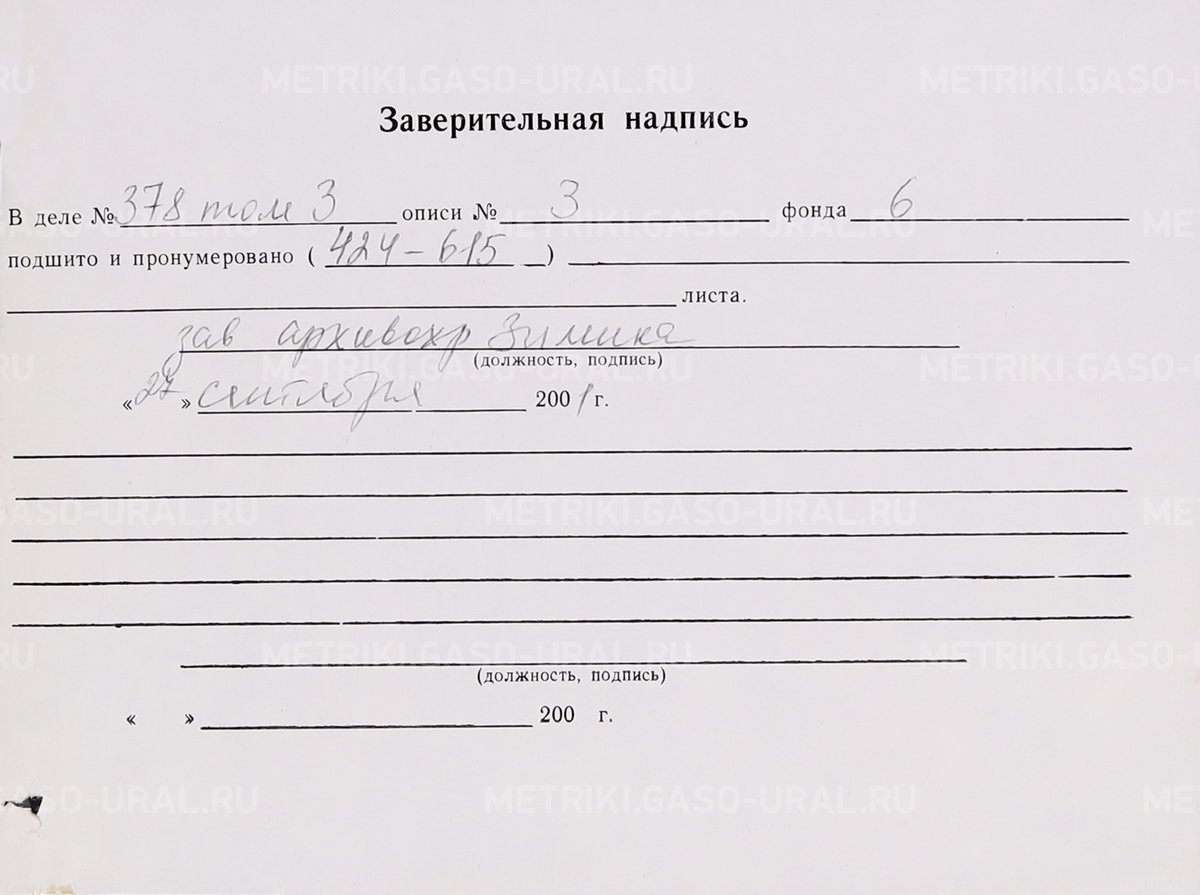 Заверительная надпись
В деле № 378 том 3 описи № 3 фонда 6
подшито и пронумеровано ( 424-615 )
листа.
зав архивохр Зимина
(должность, подпись)
«27» сентября 2001 г.
(должность, подпись)
« » 200 г.
METRIKI.GASO-URAL.RU